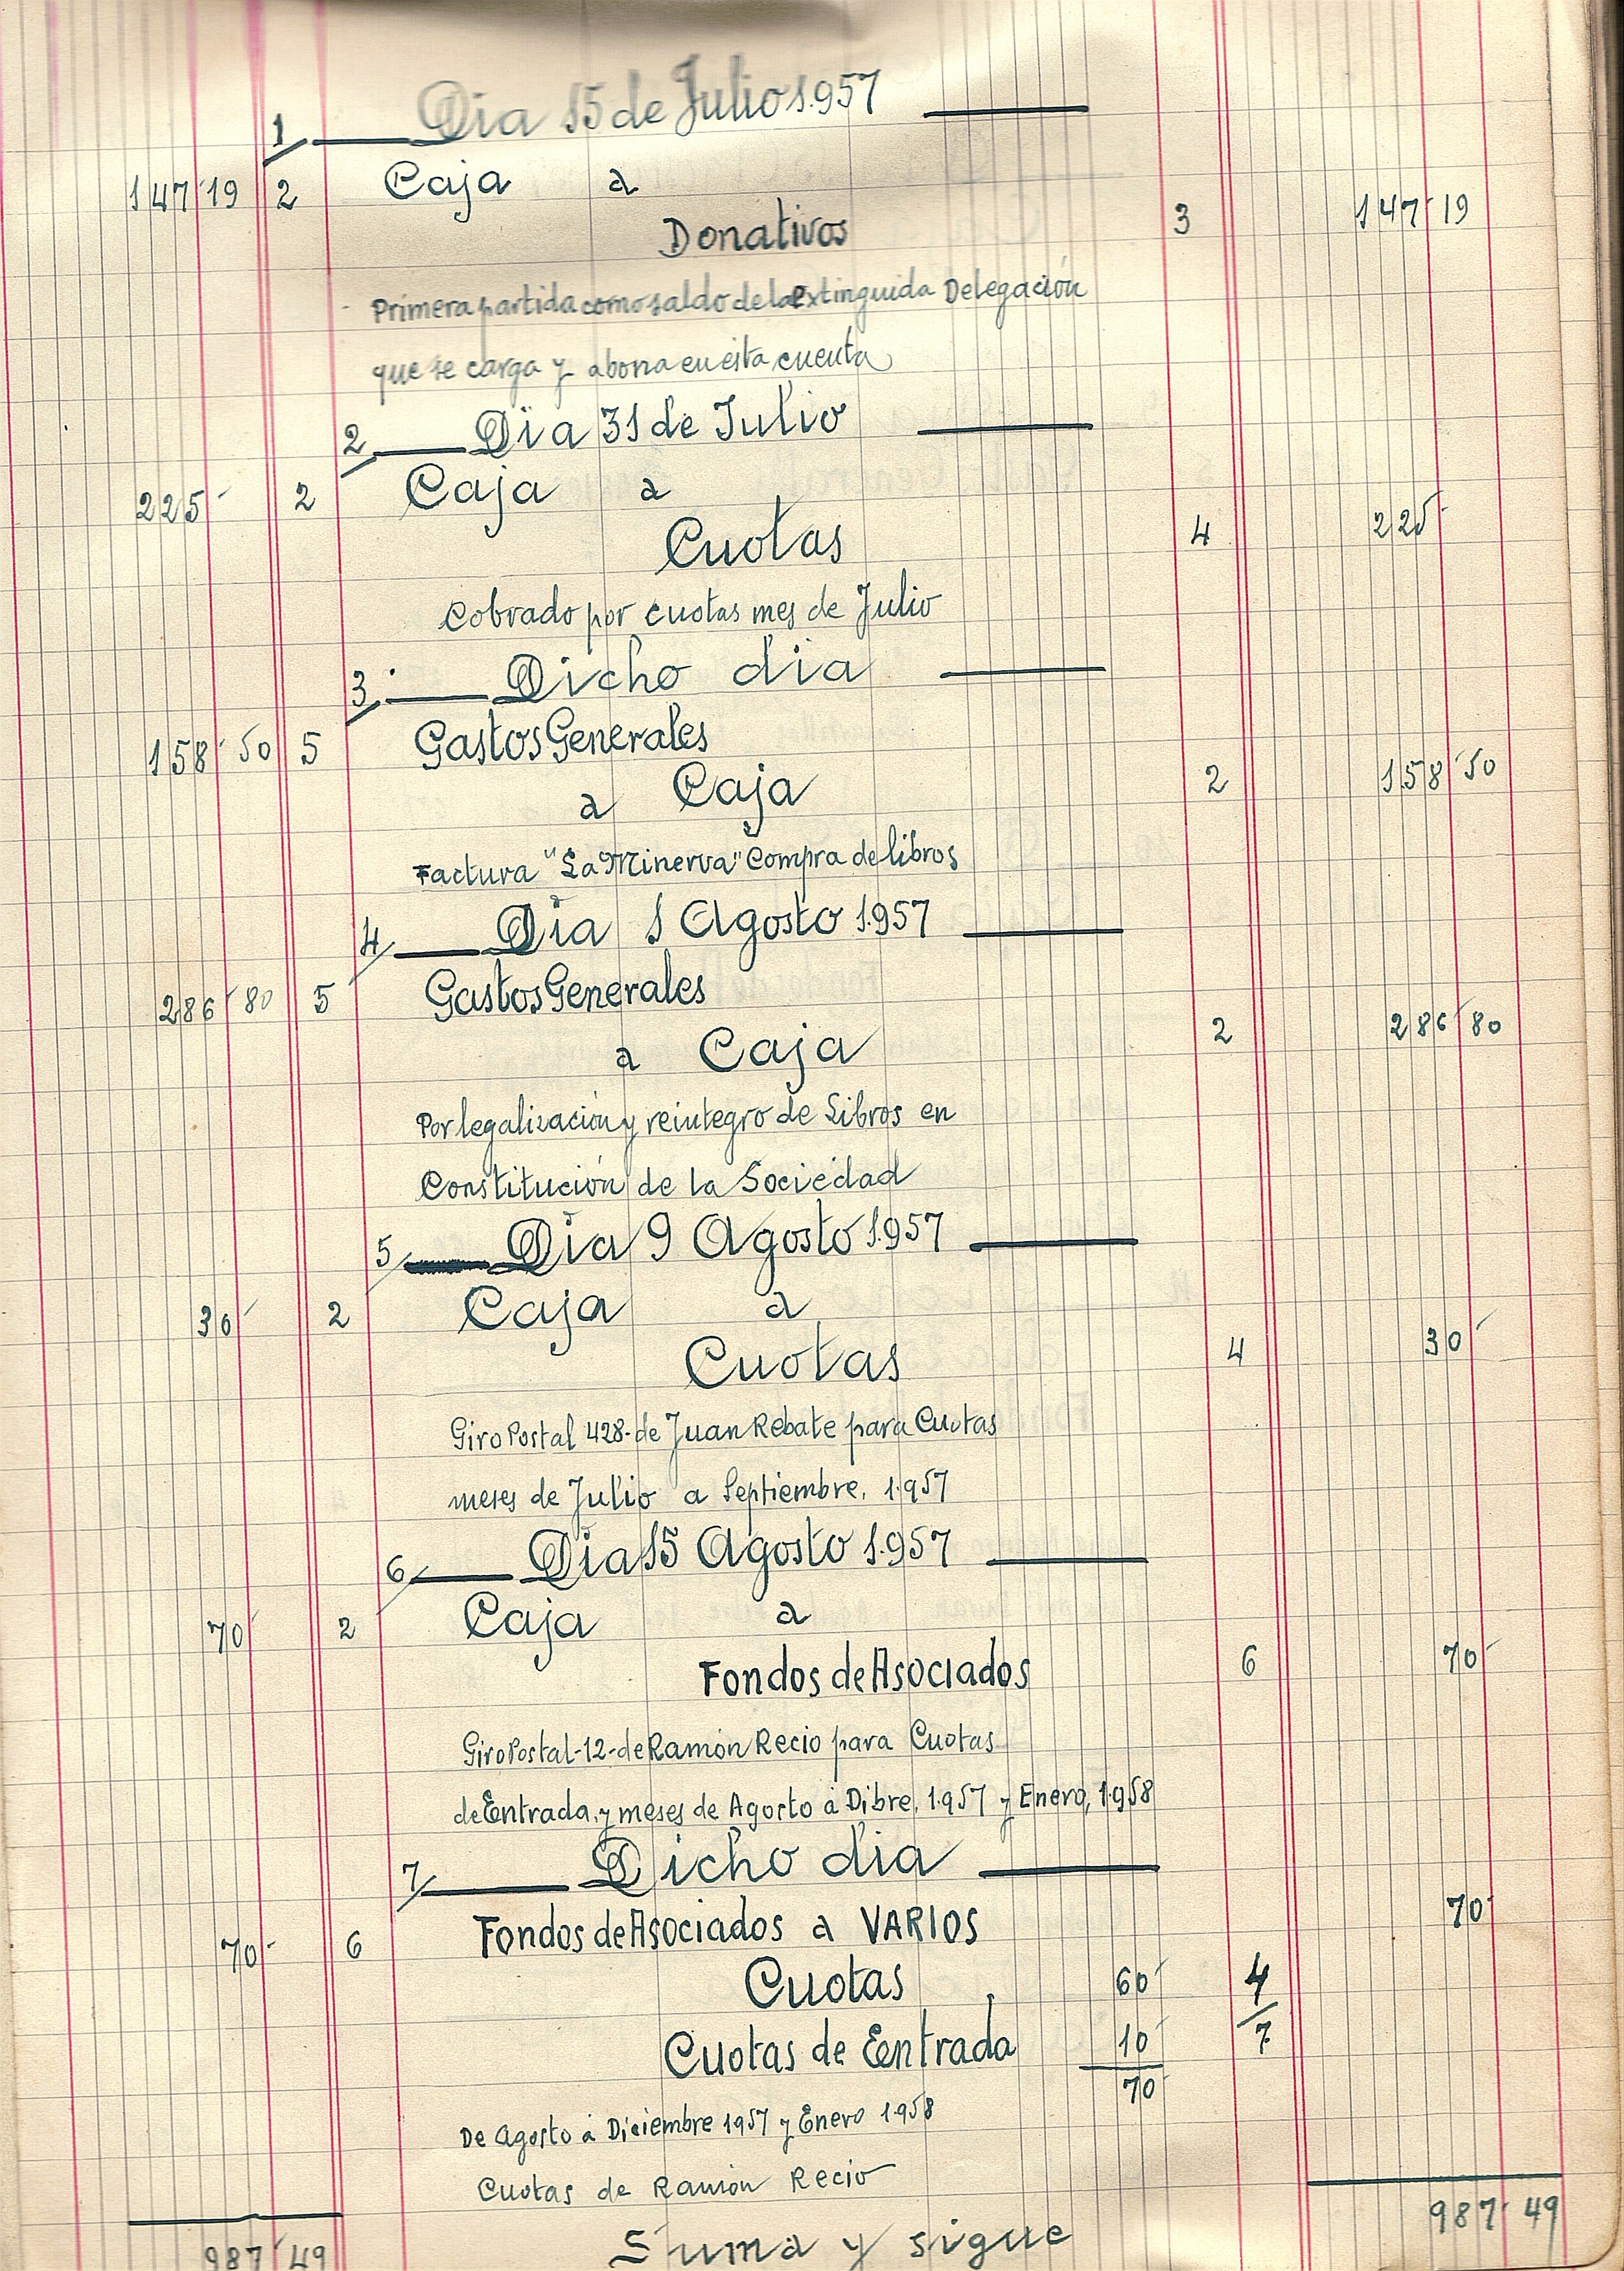 1 Dia 15 de Julio 1.957
147'19 2 Caja a
Donativos 3 147'19
Primera partida como saldo de la extinguida Delegación
que se carga y abona en esta cuenta
2 Dia 31 de Julio
225' 2 Caja a
Cuotas 4 225'
Cobrado por cuotas mes de Julio
3 Dicho dia
158'50 5 Gastos Generales
a Caja 2 158'50
Factura "La Minerva" Compra de libros
4 Dia 1 Agosto 1.957
286'80 5 Gastos Generales
a Caja 2 286'80
Por legalización y reintegro de Libros en
Constitución de la Sociedad
5 Dia 9 Agosto 1.957
30' 2 Caja a
Cuotas 4 30'
Giro Postal 428-de Juan Rebate para Cuotas
meses de Julio a Septiembre, 1.957
6 Dia 15 Agosto 1.957
70' 2 Caja a
Fondos de Asociados 6 70'
Giro Postal-12-de Ramón Recio para Cuotas
de Entrada, y meses de Agosto a Dibre, 1.957 y Enero, 1.958
7 Dicho dia
70' 6 Fondos de Asociados a VARIOS 70'
Cuotas 60' 4
Cuotas de Entrada 10' 7
70'
De Agosto a Diciembre 1957 y Enero 1.958
Cuotas de Ramón Recio
987'49 Suma y sigue 987'49